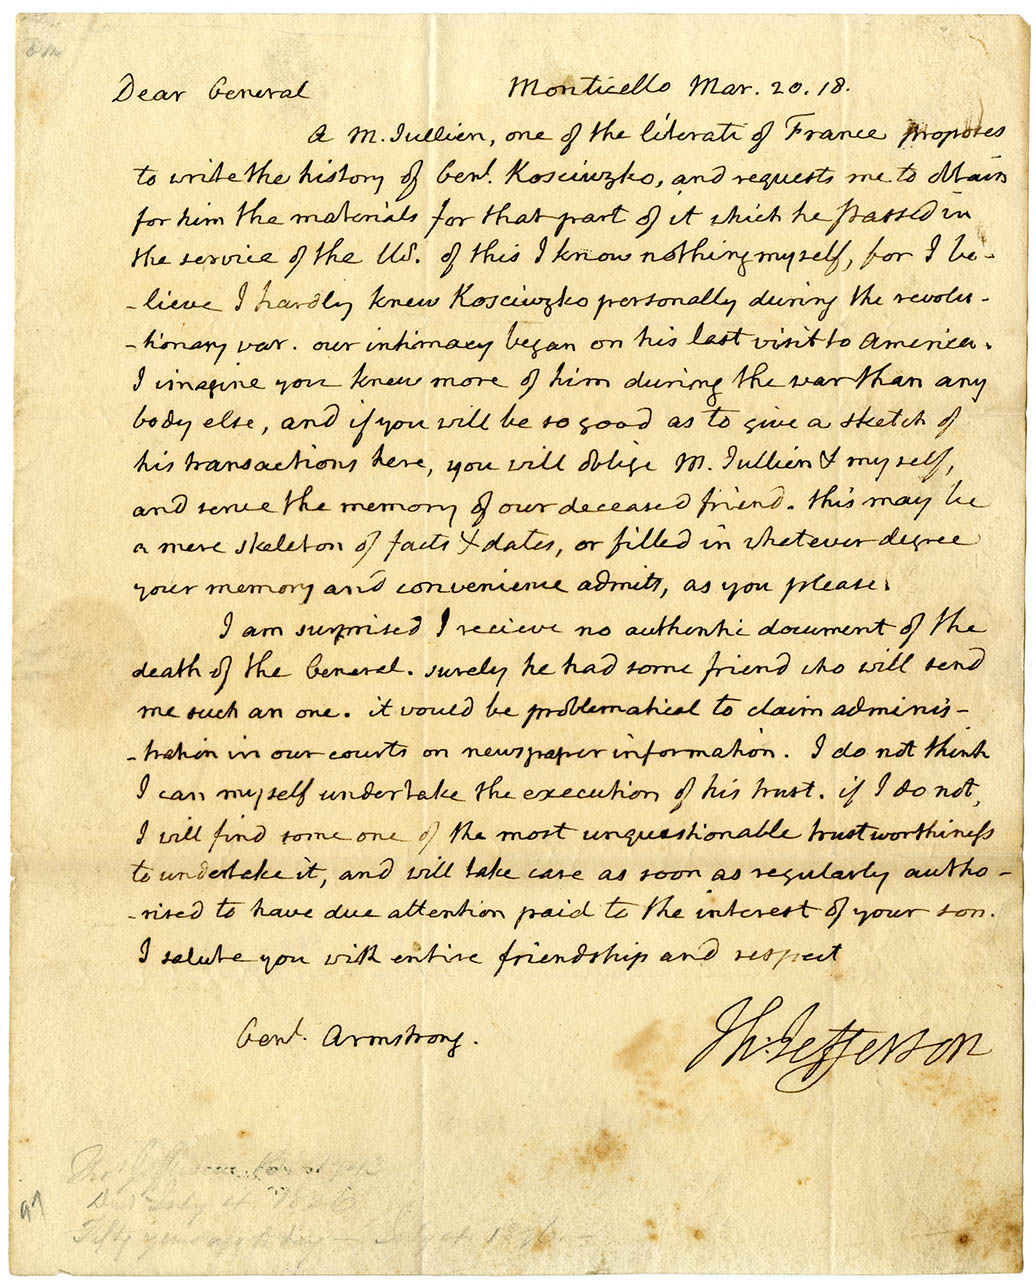 Dear General Monticello Mar. 20. 18.
A M. Jullien, one of the literati of France proposes
to write the history of Genl. Kosciuzko, and requests me to obtain
for him the materials for that part of it which he passed in
the service of the US. of this I know nothing myself, for I be-
-lieve I hardly knew Kosciuzko personally during the revolu-
-tionary war. our intimacy began on his last visit to America.
I imagine you knew more of him during the war than any
body else, and if you will be so good as to give a sketch of
his transactions here, you will oblige M. Jullien & myself,
and serve the memory of our deceased friend. this may be
a mere skeleton of facts & dates, or filled in whatever degree
your memory and convenience admits, as you please.
I am surprised I recieve no authentic document of the
death of the General. surely he had some friend who will send
me such an one. it would be problematical to claim adminis-
-tration in our courts on newspaper information. I do not think
I can myself undertake the execution of his trust. if I do not,
I will find some one of the most unquestionable trustworthiness
to undertake it, and will take care as soon as regularly autho-
-rised to have due attention paid to the interest of your son.
I salute you with entire friendship and respect
Th: Jefferson
Genl. Armstrong.
Thos Jefferson
Died July 4. 1826
Fifty years ago to day - July 4. 1876 -
97